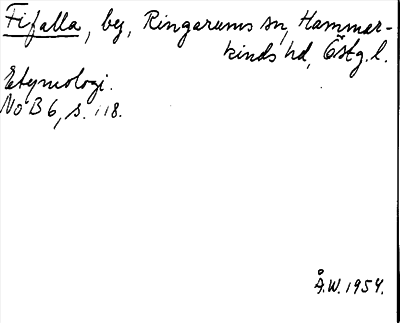 Fifalla, by, Ringarums sn, Hammar-
kinds hd, Östg.l.
Etymologi.
NoB 6, s. 118.
Å.W. 1954.